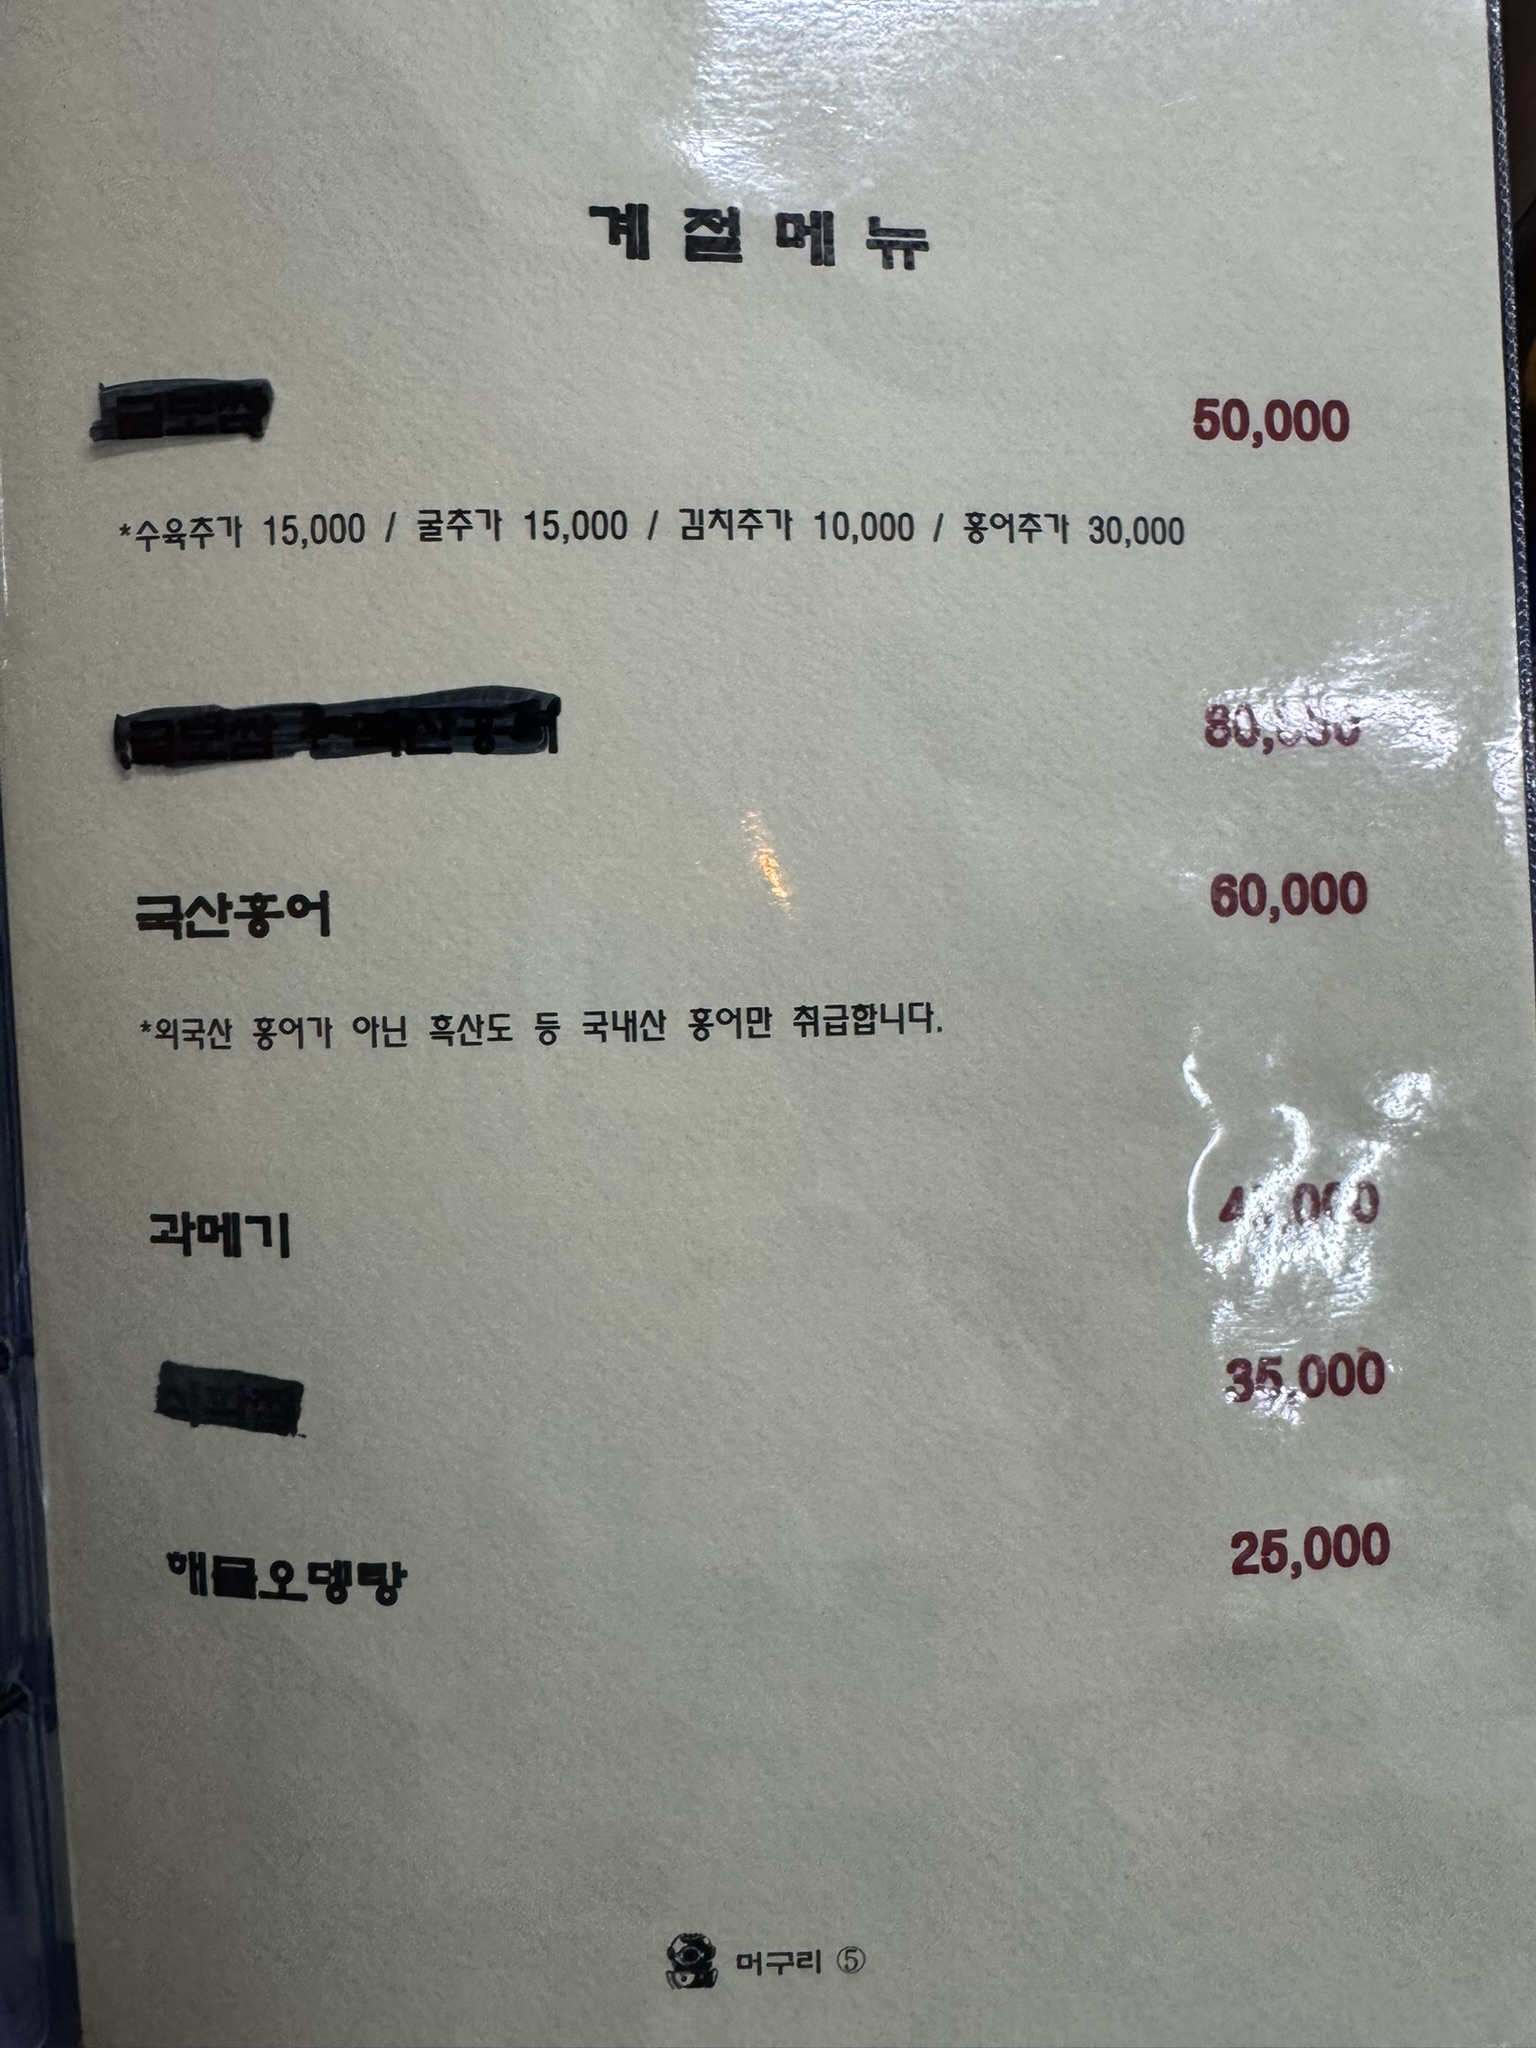 계절메뉴
50,000
*수육추가 15,000 / 굴추가 15,000 / 김치추가 10,000 / 홍어추가 30,000
국산홍어 60,000
*외국산 홍어가 아닌 흑산도 등 국내산 홍어만 취급합니다.
과메기
35,000
해물오뎅탕 25,000
머구리 ⑤